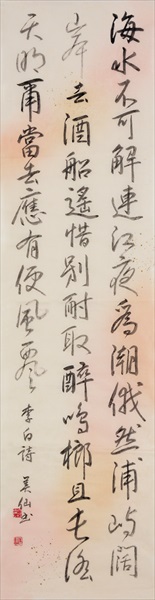 海水不可解連江夜爲潮俄然浦嶼闊
岸去酒船遙惜別耐取醉鳴榔且長謠
天明爾當去應有便風飄 李白詩 美仙書